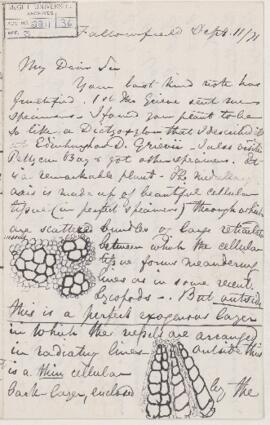 ARCHIVES
36
Fallowfield Sept. 11/71
My Dear Sir
Your last kind note has
fructified. 1st Mr Grieve sent me
specimens. I found your plant to be
so like a Dictyoxylon that I described it
at Edinburgh as D. Grievii. I also visited
Pettycur Bay & got other specimens. It
is a remarkable plant. The medullary
axis is made up of beautiful cellular
tissue (in perfect specimens) through which
are scattered bundles of large reticulated
vessels between which the cellular
tissue forms meandering
lines as in some recent
Lycopods. But outside
this is a perfect exogenous layer
in which the vessels are arranged
in radiating lines outside this
is a thin cellular
bark layer, enclosed by the